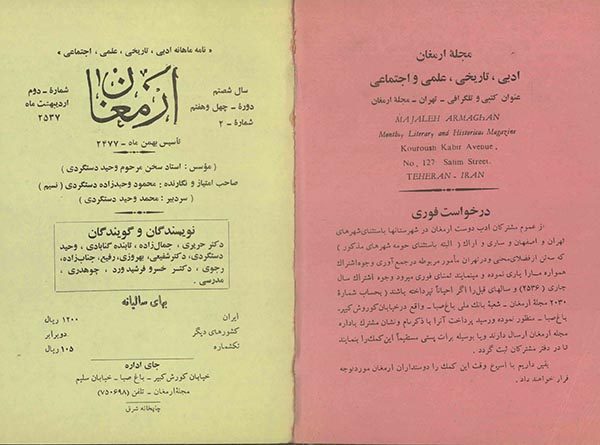 مجلهٔ ارمغان
ادبی ، تاریخی ، علمی و اجتماعی
عنوان کتبی و تلگرافی - تهران - مجلهٔ ارمغان
MAJALEH ARMAGHAN
Monthly Literary and Historicus Magazine
Kourouah Kabir Avenue,
No, 127 Salim Street.
TEHERAN - IRAN
درخواست فوری
از عموم مشترکان ادب دوست ارمغان در شهرستانها باستثنای شهرهای
تهران و اصفهان و ساری و اراك ( البته باستثنای حومه شهرهای مذکور )
که سه‌تن ازفضلای محلی ودرتهران مأمور مربوطه درجمع‌آوری وجوه اشتراك
همواره مـارا یاری نموده و مینمایند تمنای فوری میرود وجوه اشتراك سال
جاری (۲۵۳۶) و سالهای قبل را اگر احیاناً نپرداخته باشند ( بحساب شمارهٔ
۲۰۳۰ مجلهٔ ارمغان - شعبهٔ بانك ملی باغ‌صبا - واقع درخیابان کوروش‌کبیر.
باغ‌صبا - منظور نموده ورسید پرداخت آنرا با ذکر نام ونشان مشترك باداره
مجله ارمغان ارسال دارند ویا بوسیله برات پستی مستقیماً این کمك را بنمایند
تا در دفتر مشترکان ثبت گردد .
یقین داریم با اسرع وقت این کمك را دوستداران ارمغان موردتوجه
قرار خواهند داد .
« نامه ماهانه ادبی ، تاریخی ، علمی ، اجتماعی »
سال شصتم
دورهٔ - چهل وهفتم
شمارهٔ - ۲
ارمغان
شمارهٔ - دوم
اردیبهشت ماه
۲۵۳۷
تأسیس بهمن ماه - ۲۴۷۷
( مؤسس : استاد سخن مرحوم وحید دستگردی )
صاحب امتیاز و نگارنده : محمود وحیدزاده دستگردی ( نسیم )
( سردبیر : محمد وحید دستگردی )
نویسندگان و گویندگان
دکتر حریری، جمال‌زاده، تابنده گنابادی، وحید
دستگردی، دکترشفیعی، بهروزی، رفیع، جناب‌زاده،
رجوی ، دکتـر خسرو فرشیدورد ، چوهدری ،
مدرسی .
بهای سالیانه
ایران ۱۲۰۰ ریال
کشورهای دیگر دوبرابر
تکشماره ۱۰۵ ریال
جای اداره
خیابان کورش‌کبیر - باغ صبا - خیابان سلیم
مجله ارمغان - تلفن (۷۵۰۶۹۸)
چاپخانه شرق